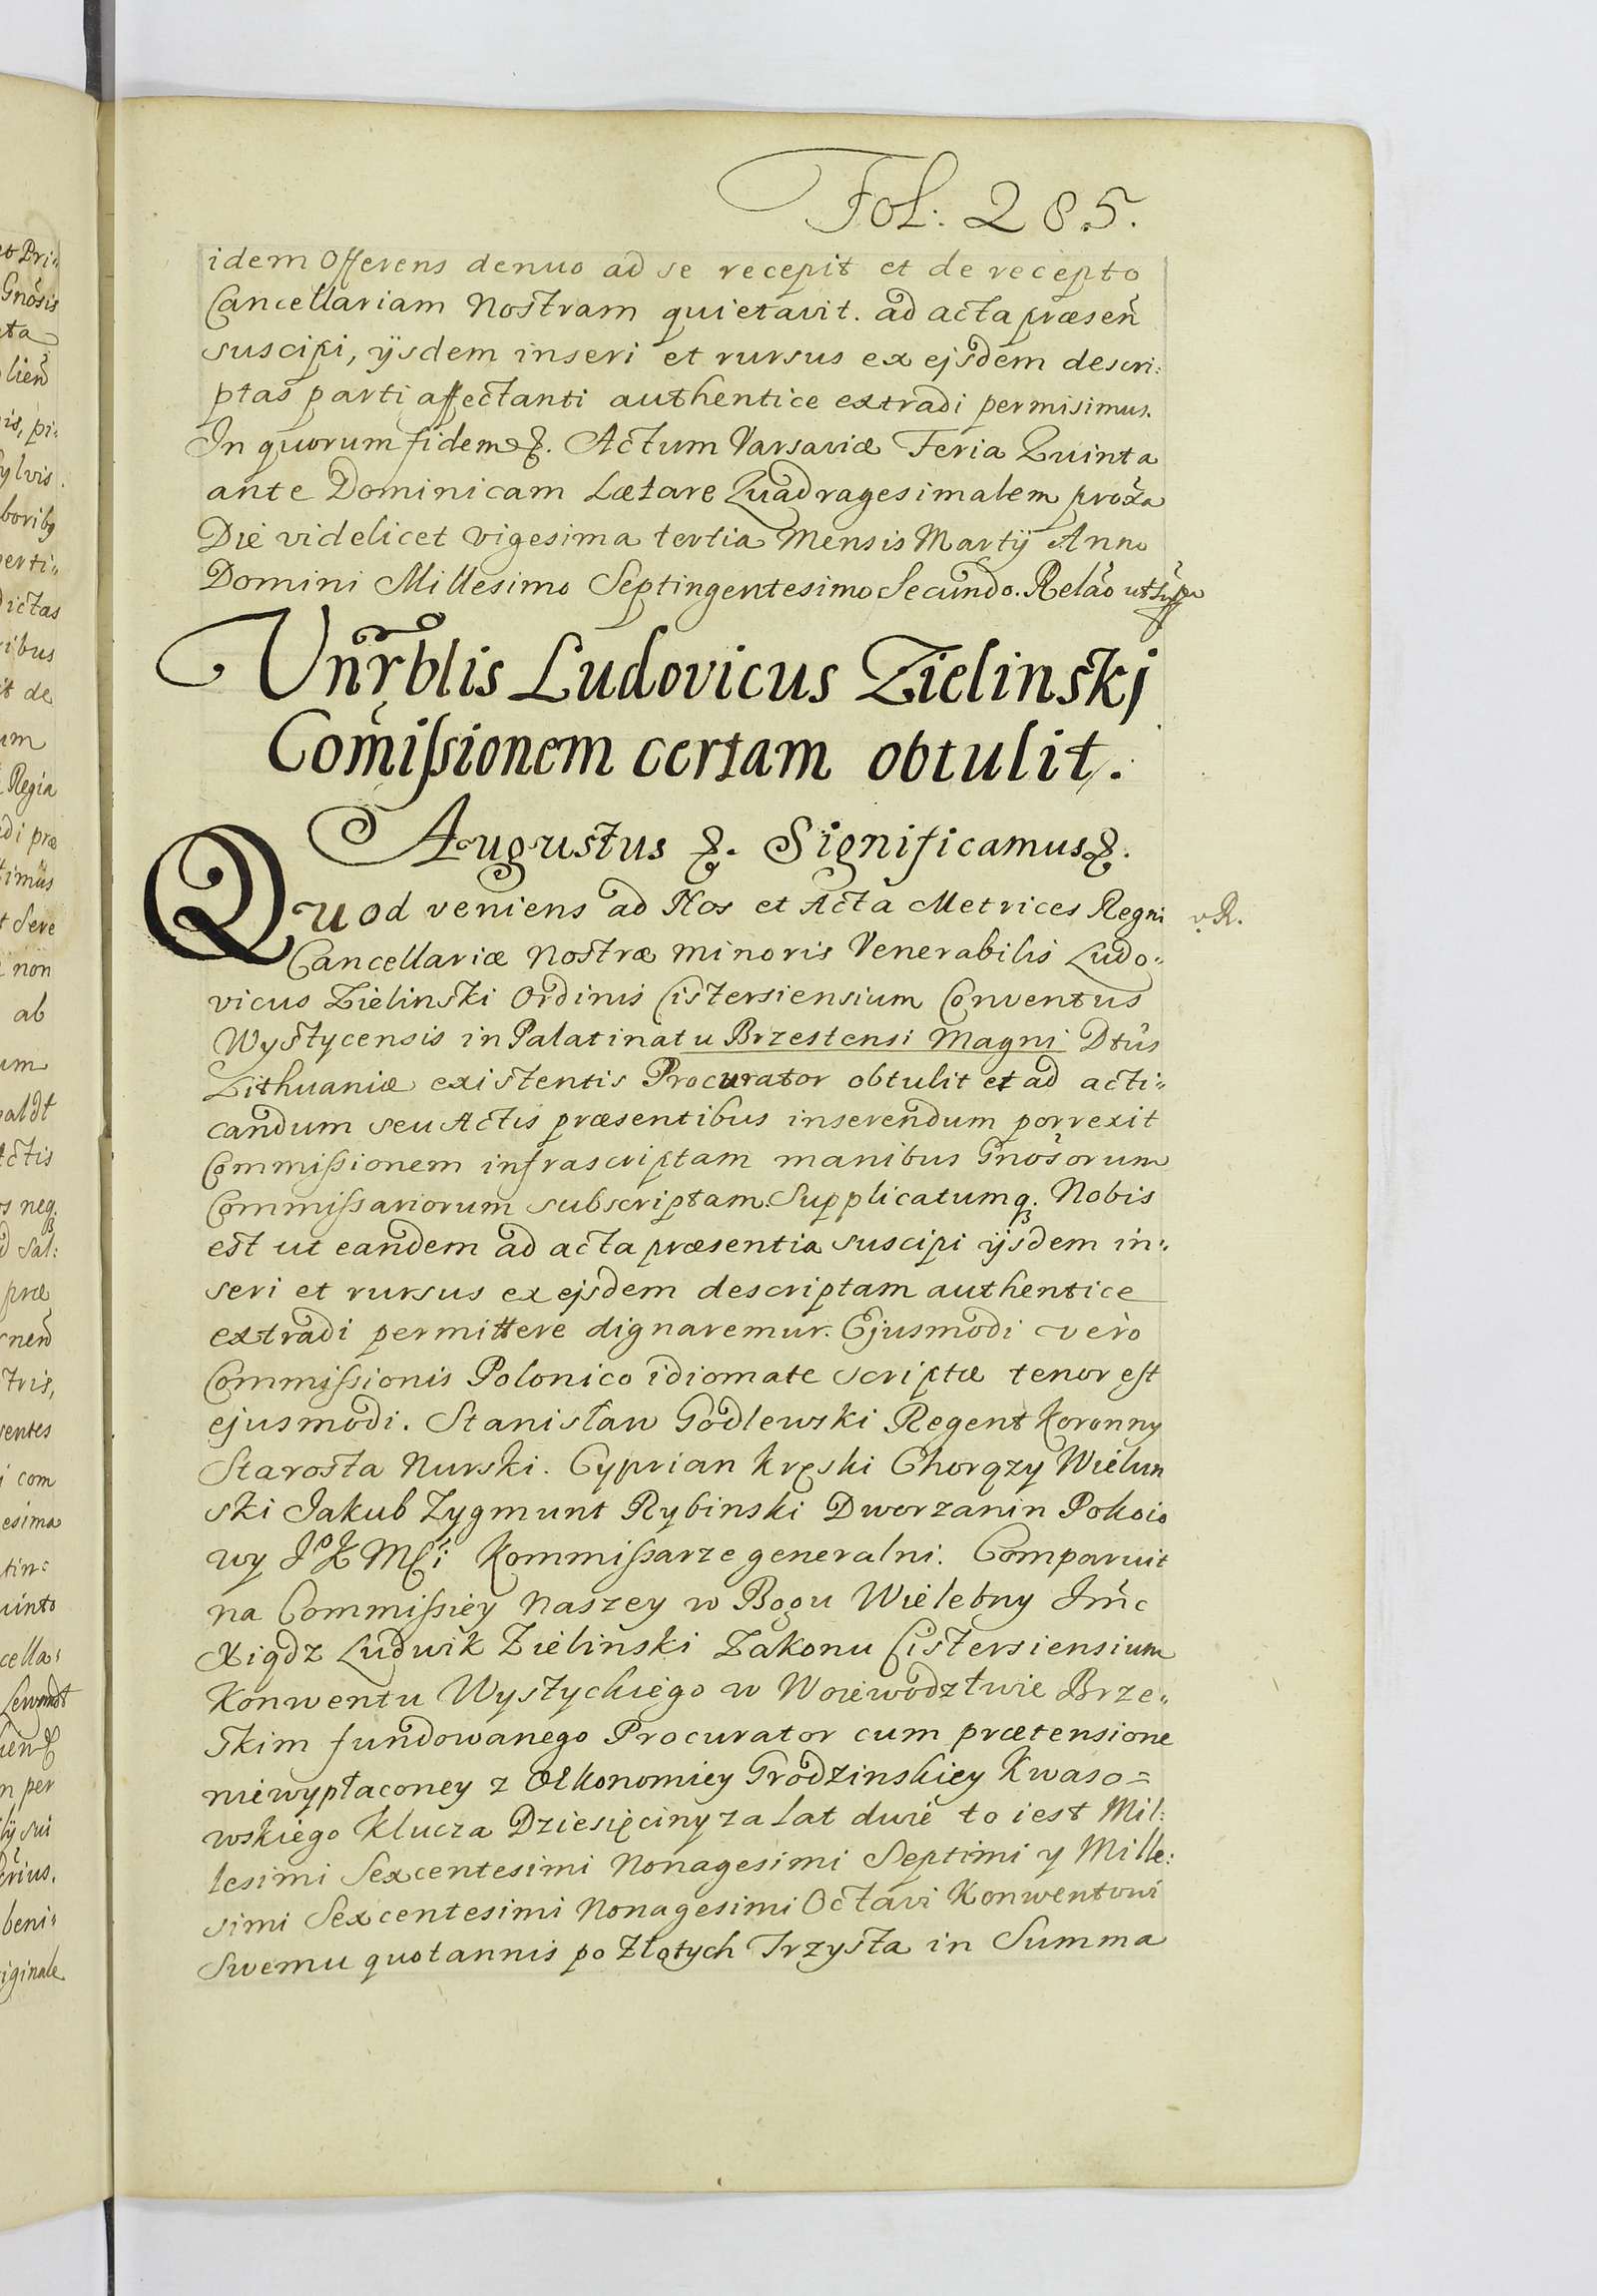 Fol: 285.
idem Offerens denuo ad se recepit et de recepto
Cancellariam Nostram quietavit. ad acta præsen̄
suscipi, ijsdem inseri et rursus ex ejsdem descri:
ptas parti affectanti authentice extradi permisimus.
In quorum fidem &. Actum Varsaviæ Feria Quinta
ante Dominicam Lætare Quadragesimalem prox̃a
Die videlicet vigesima tertia Mensis Martij Anno
Domini Millesimo Septingentesimo Secundo. Relão ut supra
Vnrblis Ludovicus Zielinski
Com̃issionem certam obtulit.
Augustus &. Significamus &.
Quod veniens ad Nos et Acta Metrices Regni
v. R.
Cancellariæ Nostræ minoris Venerabilis Ludo„
vicus Zielinski Ordinis Cistersiensium Conventus
Wystycensis in Palatinatu Brzestensi Magni Dtũs
Lithuaniæ existentis Procurator obtulit et ad acti„
candum seu Actis præsentibus inserendum porrexit
Commissionem infrascriptam manibus Gnõsorum
Commissariorum subscriptam. Supplicatumq; Nobis
est ut eandem ad acta præsentia suscipi ijsdem in„
seri et rursus ex ejsdem descriptam authentice
extradi permittere dignaremur. Ejusmodi vero
Commissionis Polonico idiomate scriptæ tenor est
ejusmodi. Stanisław Godlewski Regent Koronny
Starosta Nurski. Cyprian Kręski Chorązy Wielun
ski Jakub Zygmunt Rybinski Dworzanin Pokoio
wy JoK Mści Kommissarze generalni. Comparuit
na Commissiey Naszey w Bogu Wielebny Jmc̃
Xiądz Ludwik Zielinski Zakonu Cistersiensium
Konwentu Wystyckiego w Woiewodztwie Brze„
skim fundowanego Procurator cum prætensione
niewypłaconey z Oekonomiey Grodzinskiey Kwaso=
wskiego Klucza Dziesięciny za lat dwie to iest Mil:
lesimi Sexcentesimi Nonagesimi Septimi y Mille:
simi Sexcentesimi Nonagesimi Octavi Konwentowi
Swemu quotannis po Złotych Trzysta in Summa